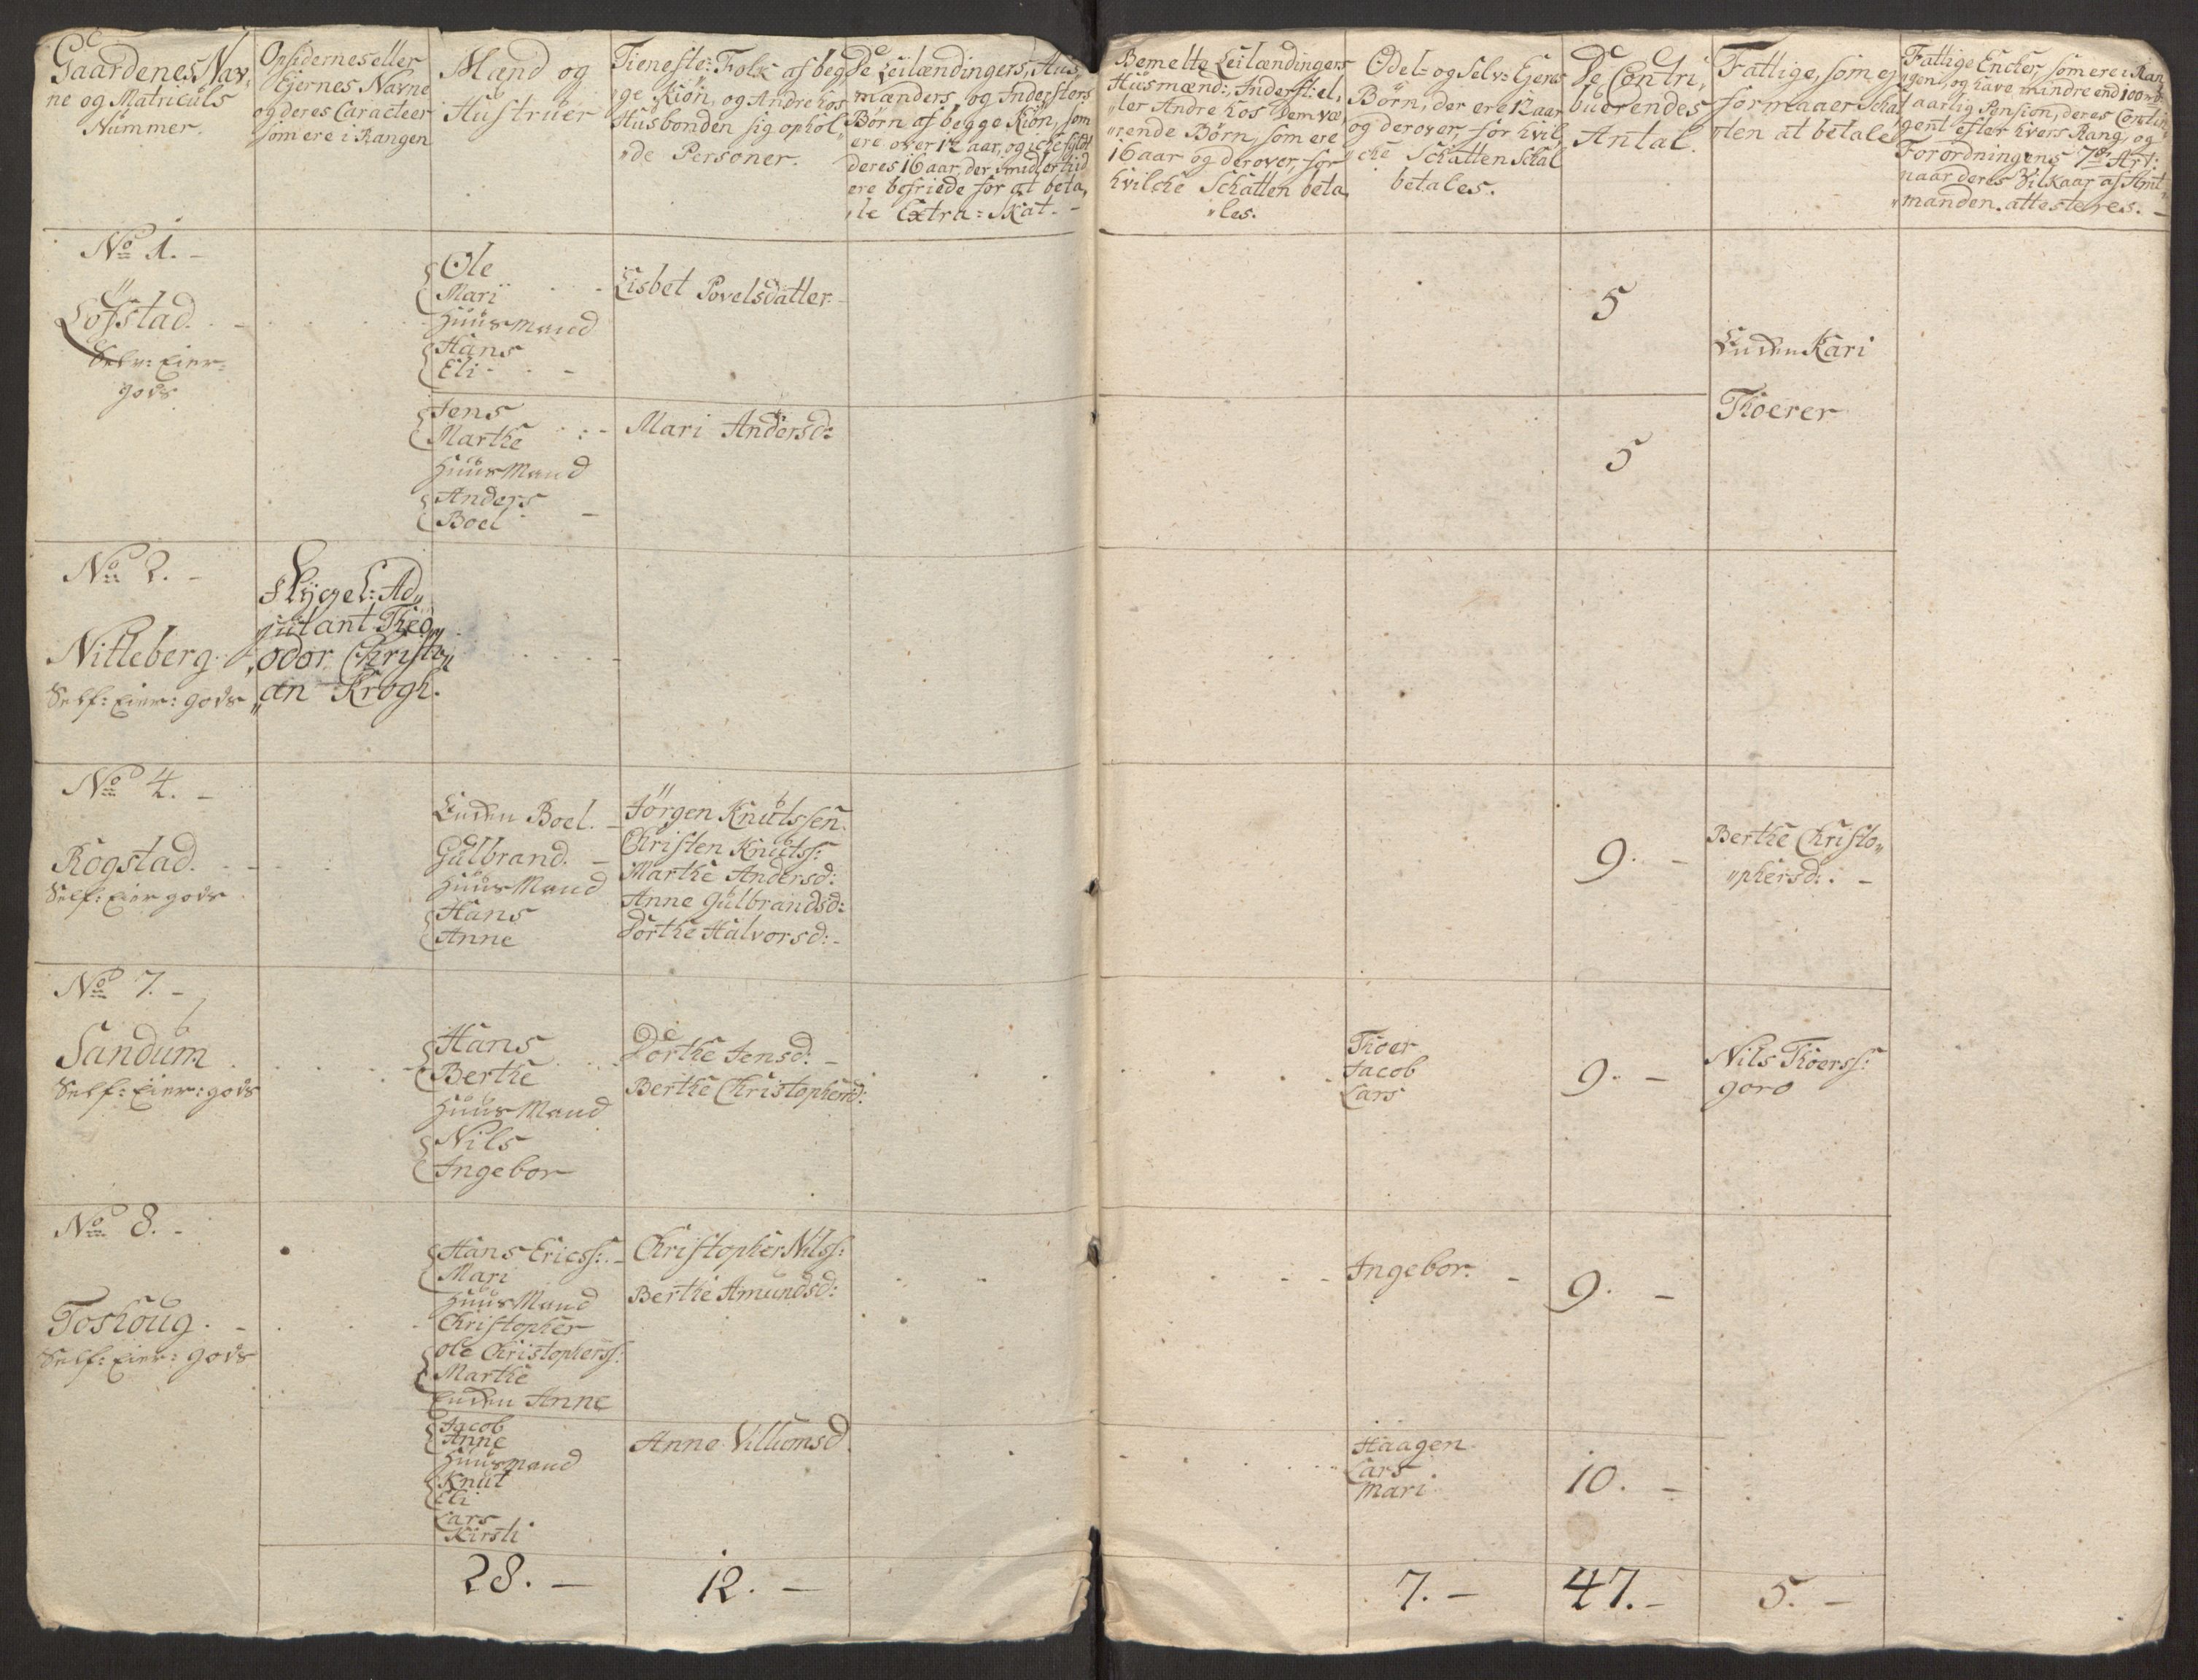 Gaardenes Nav„
ne og Matriculs
Nummer.
Opsidernes eller
Ejernes Navne
og deres Caracteer
som ere i Rangen
Mænd og
Hustruer
Tieneste: Folk af beg„
„ge Kiön, og Andre hos
Husbonden sig ophol„
„de Personer.
De Leilændingers, Hus„
mænders, og Indersters
Börn af begge Kiön, som
ere over 12 aar, og icke fyldt
deres 16 aar, der imidlertiid
ere befriede for at beta„
„le Extra=Skat. -
Bemelte Leilændingers
Husmænd:, Inderst: el„
„ler Andre hos Dem væ„
„rende Börn, som ere
16 aar og derover, for
hvilcke Schatten beta„
„les.
Odel= og Selv= Ejeres
Börn, der ere 12 aar
og derover, for hvil„
„cke Schatten Skal
betales.
De Contri„
buerendes
Antal.
Fattige, som ej
formaaer Schat„
„ten at betale
Fattige Encker, som ere i Ran„
„gen, og have mindre end 100 rd
aarlig Pension, deres Contin„
gent efter hvers Rang, og
Forordningens 7de Art:
naar deres Vilkaar af Amt„
„manden attesteres. -
No 1. -
Löfstad. -
Selv: Eier=
gods
Ole
Mari
Huusmand
Hans
Eli - -
Lisbet Povelsdatter
5
Enken Kari
Jens
Marthe
Huusmand
Anders
Boel -
Mari Andersd:
5
Thoerer
No 2. -
Nitteberg
Self: Eier: gods
Flygel: Ad„
jutant Thed„
„odor Christi„
„an Krogh.
No 4. -
Rogstad.
Self: Eier gods
Enken Boel.
Gulbrand. -
Huusmand
Hans
Anne
Jörgen Knutssen.
Christen Knutss:
Marthe Andersd:
Anne Gulbrandsd:
Dorthe Halvorsd: -
9. -
Berthe Christo„
„phersd: -
No 7. -
Sandum
Self: Eier: gods
Hans
Berthe
Huusmand
Nils
Ingebor
Dorthe Jensd: -
Berthe Christophersd:
Thoer
Jacob
Lars
9. -
Nils Thoerss:
goro
No 8. -
Toshoug. -
Self: Eier: gods
Hans Ericss: -
Mari
Huusmand
Christopher
Ole Christopherss:
Marthe
Enken Anne
Christopher Nilss:
Berthe Amundsd:
Ingebor. -
9. -
Jacob
Anne
Huusmand
Knut
Eli
Lars
Kirsti
Anne Villumsd
Haagen
Lars
Mari
10. -
28. -
12. -
7. -
47. -
5. -